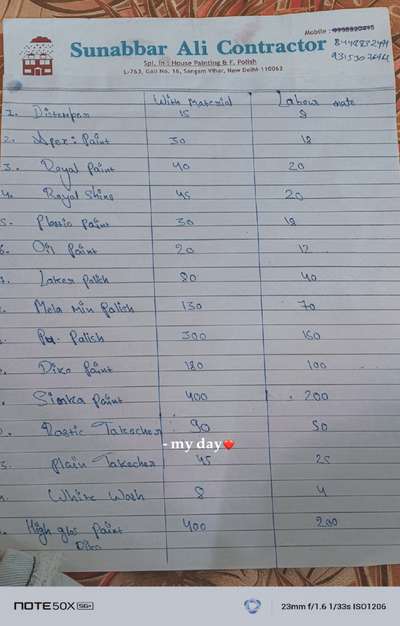 Mobile : 9958820495
Sunabbar Ali Contractor
Spl. in : House Painting & F. Polish
L-763, Gali No. 16, Sangam Vihar, New Delhi-110062
With Material Labour rate
1. Distemper 15 8
2. Apex: Paint 30 18
3. Royal Paint 40 20
4. Royal Shine 45 20
5. Plastic Paint 30 18
6. Oil Paint 20 12
7. Laker Polish 80 40
Mela min Palish 130 70
Pu. Palish 300 150
Diko Paint 180 100
Simka Paint 400 200
Rastic Takscher 90 50
- my day❤️
Plain Takscher 45 25
White Wash 8 4
High glos Paint 400 200
Diko
NOTE50X 5G+ 23mm f/1.6 1/33s ISO1206